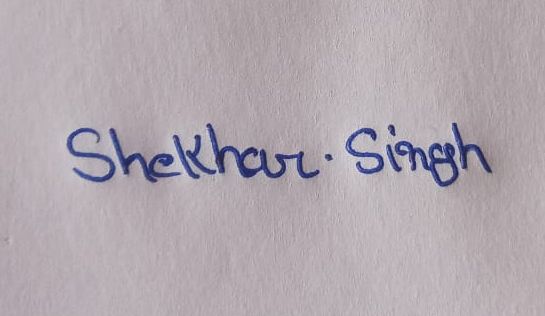 Shekhar. Singh